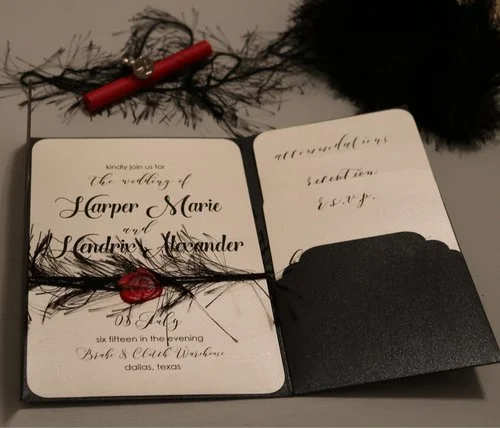 kindly join us for
the wedding of
Harper Marie
and
Hendrix Alexander
03 July
six fifteen in the evening
Brake & Clutch Warehouse
dallas, texas
accommodations
reception
r.s.v.p.